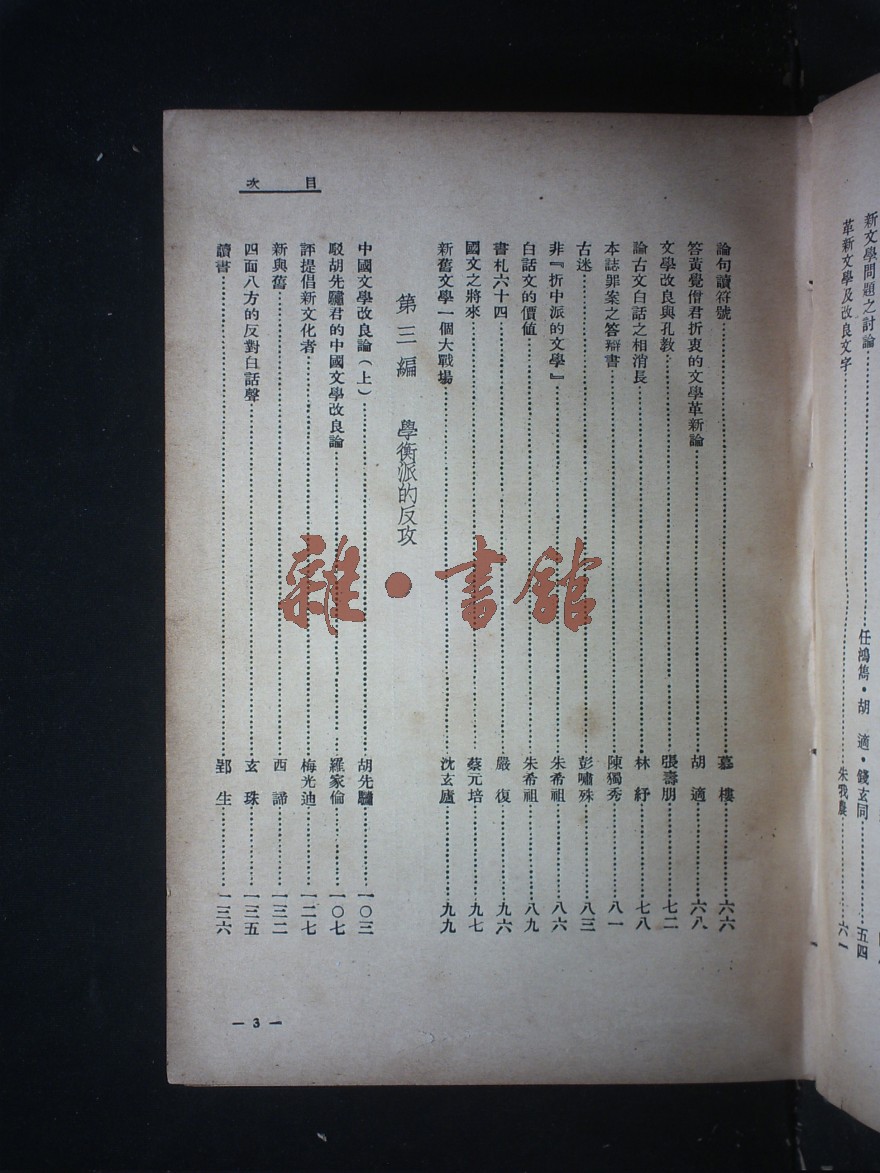 新文學問題之討論……任鴻雋・胡　適・錢玄同……五四
革新文學及改良文字……朱我農……六一
目　次
論句讀符號……慕　樓……六六
答黃覺僧君折衷的文學革新論……胡　適……六八
文學改良與孔教……張壽朋……七二
論古文白話之相消長……林　紓……七八
本誌罪案之答辯書……陳獨秀……八一
古迷……彭嘯殊……八三
非『折中派的文學』……朱希祖……八六
白話文的價値……朱希祖……八九
書札六十四……嚴　復……九六
國文之將來……蔡元培……九七
新舊文學一個大戰場……沈玄廬……九九
第三編　學衡派的反攻
中國文學改良論（上）……胡先驌……一〇三
駁胡先驌君的中國文學改良論……羅家倫……一〇七
評提倡新文化者……梅光迪……一二七
新與舊……西　諦……一三二
四面八方的反對白話聲……玄　珠……一三五
讀書……郢　生……一三六
— 3 —
雜・書舘